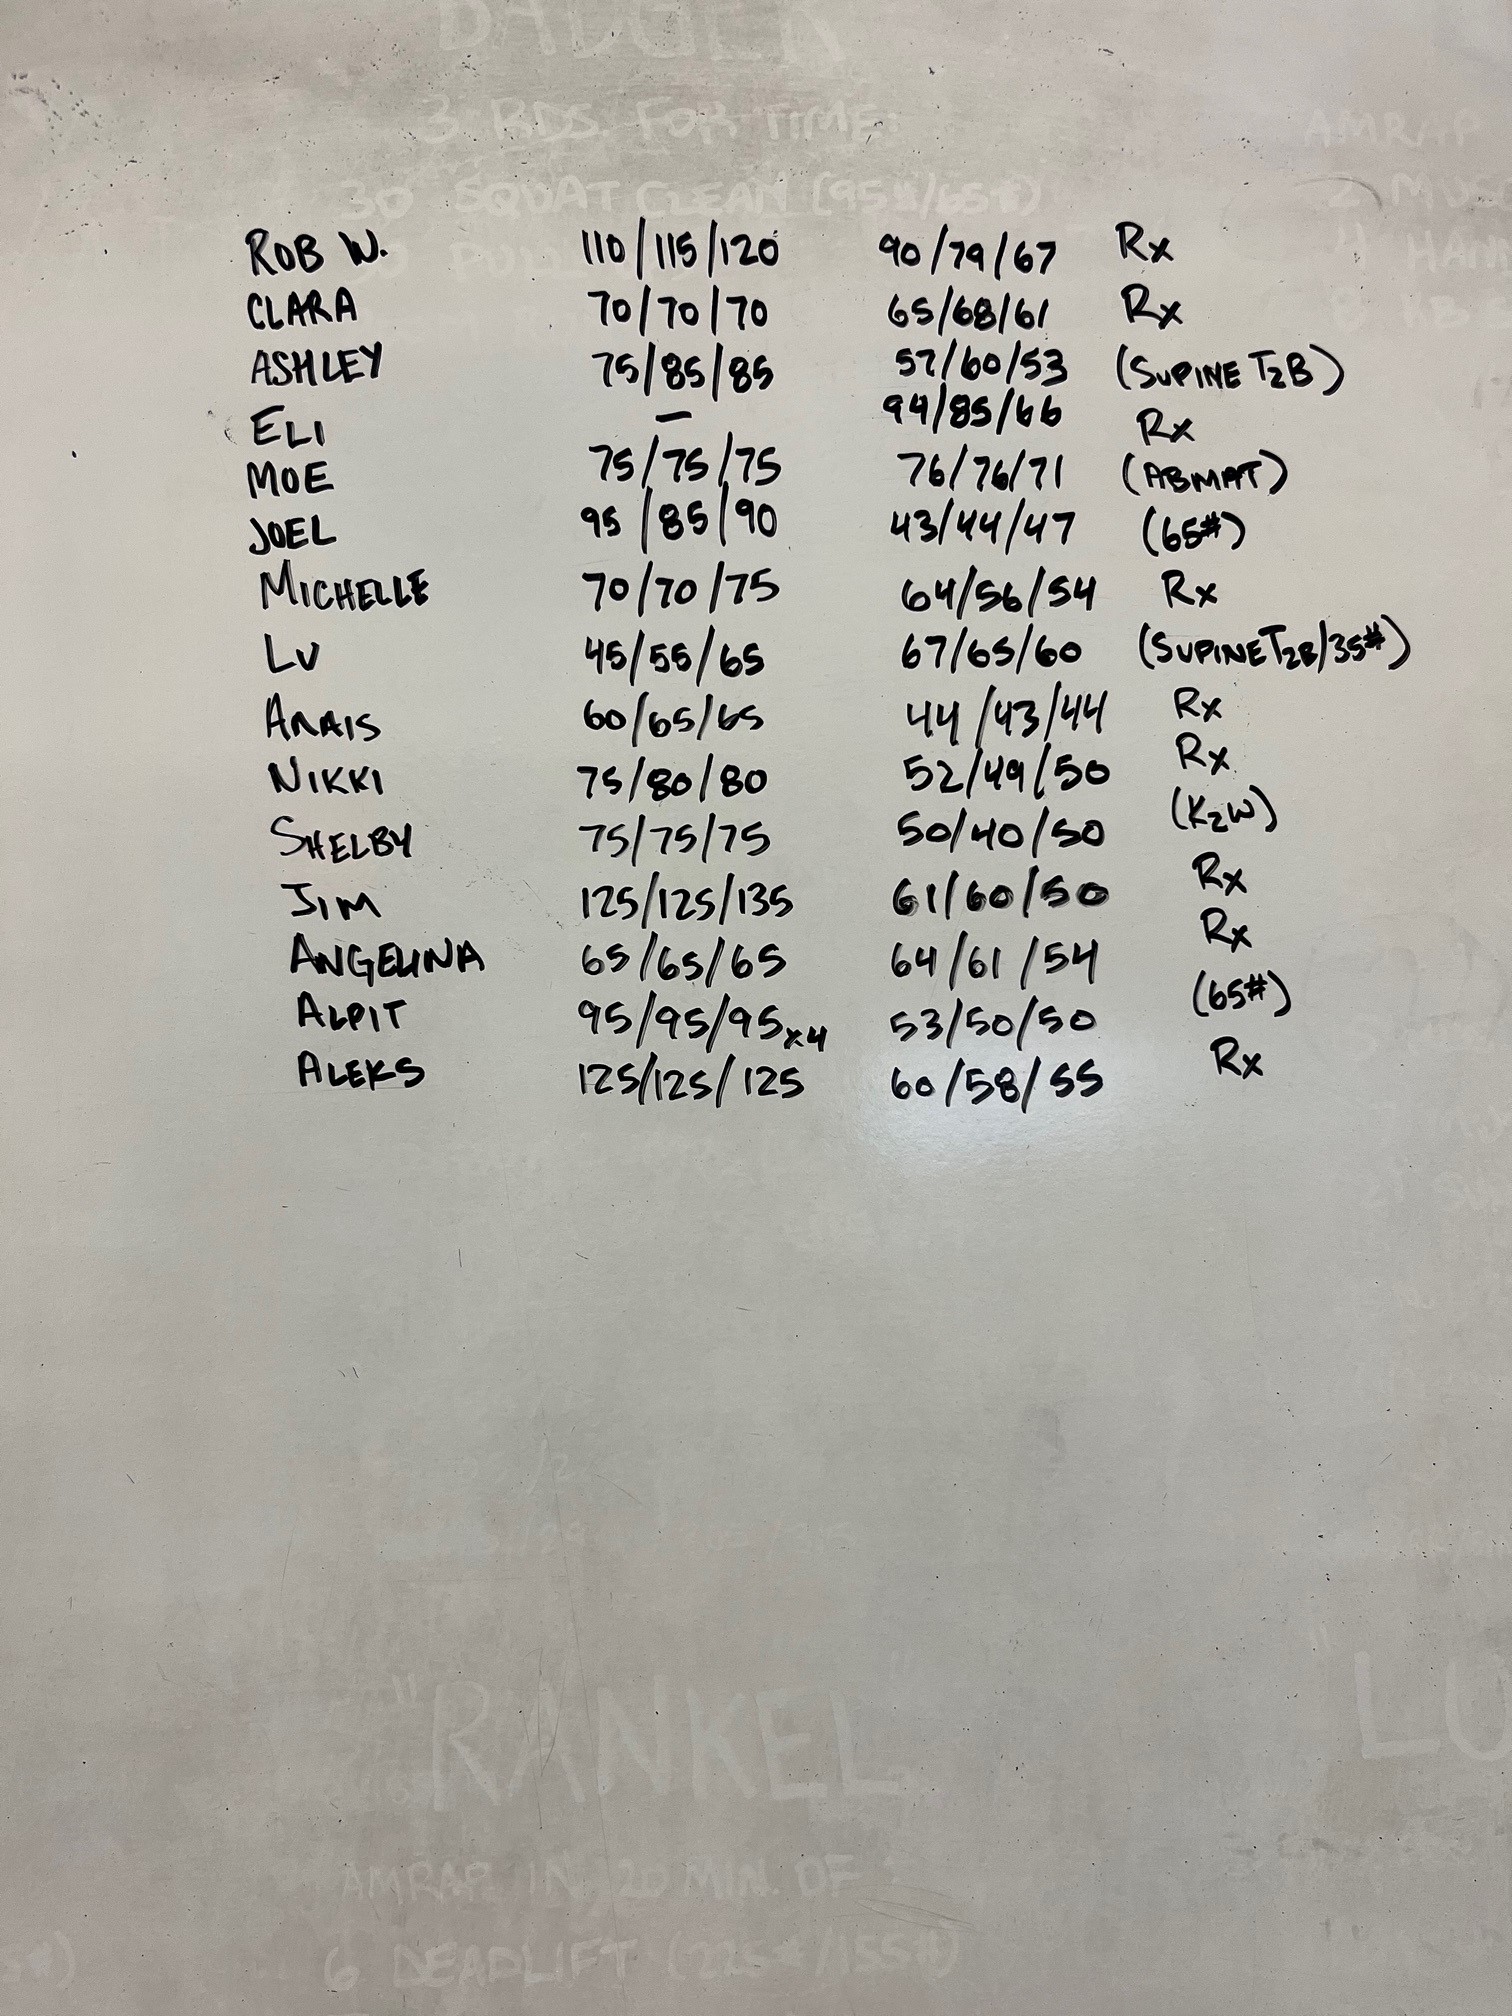 BADGER
3 RDS. FOR TIME:
30 SQUAT CLEAN (95#/65#)
AMRAP
2
4
8
ROB W. 110/115/120 90/79/67 Rx
CLARA 70/70/70 65/68/61 Rx
ASHLEY 75/85/85 57/60/53 (SUPINE T2B)
ELI — 94/85/66 Rx
MOE 75/75/75 76/76/71 (ABMAT)
JOEL 95/85/90 43/44/47 (65#)
MICHELLE 70/70/75 64/56/54 Rx
LV 45/55/65 67/65/60 (SUPINE T2B/35#)
ANAIS 60/65/65 44/43/44 Rx
NIKKI 75/80/80 52/49/50 Rx
SHELBY 75/75/75 50/40/50 (K2W)
JIM 125/125/135 61/60/50 Rx
ANGELINA 65/65/65 64/61/54 Rx
ALPIT 95/95/95x4 53/50/50 (65#)
ALEKS 125/125/125 60/58/55 Rx
"RANKEL"
AMRAP IN 20 MIN. OF:
6 DEADLIFT (225#/155#)